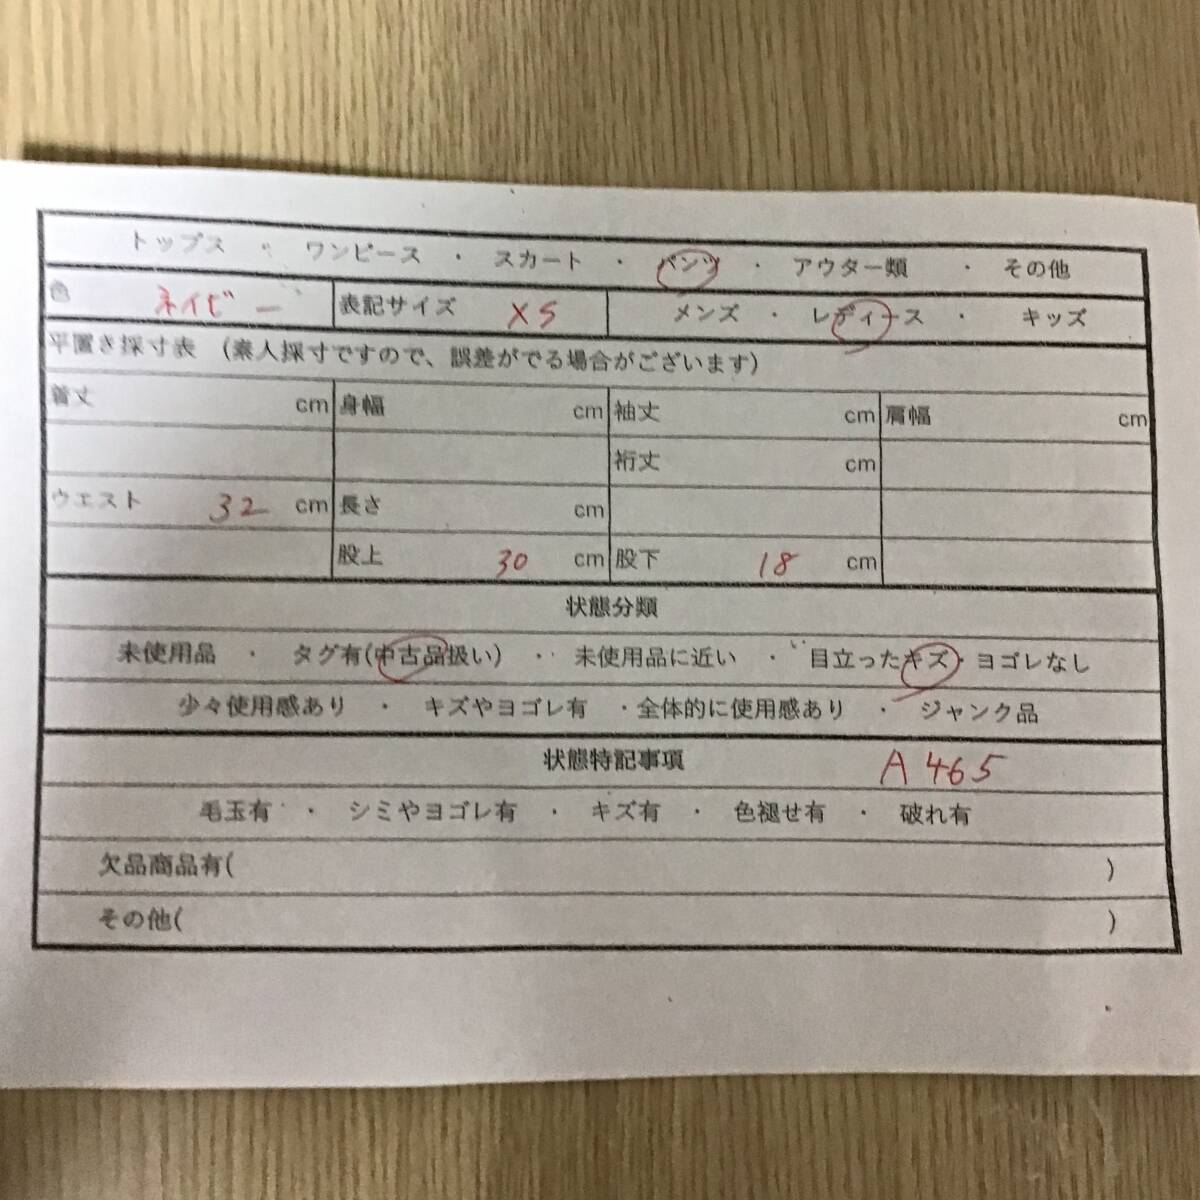 トップス ・ ワンピース ・ スカート ・ パンツ ・ アウター類 ・ その他
色 ネイビー 表記サイズ XS メンズ ・ レディース ・ キッズ
平置き採寸表 (素人採寸ですので、誤差がでる場合がございます)
着丈 cm 身幅 cm 袖丈 cm 肩幅 cm
裄丈 cm
ウエスト 32 cm 長さ cm
股上 30 cm 股下 18 cm
状態分類
未使用品 ・ タグ有(中古品扱い) ・ 未使用品に近い ・ 目立ったキズ・ヨゴレなし
少々使用感あり ・ キズやヨゴレ有 ・全体的に使用感あり ・ ジャンク品
状態特記事項 A465
毛玉有 ・ シミやヨゴレ有 ・ キズ有 ・ 色褪せ有 ・ 破れ有
欠品商品有( )
その他( )